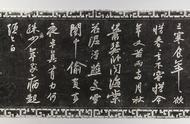 三寒食年〻欲
惜春〻去不容惜今
年又苦雨兩月秋
蕭瑟卧聞海棠
花泥汙燕支雪
闇中偷負去
夜半真有力何
殊少年病起
頭已白